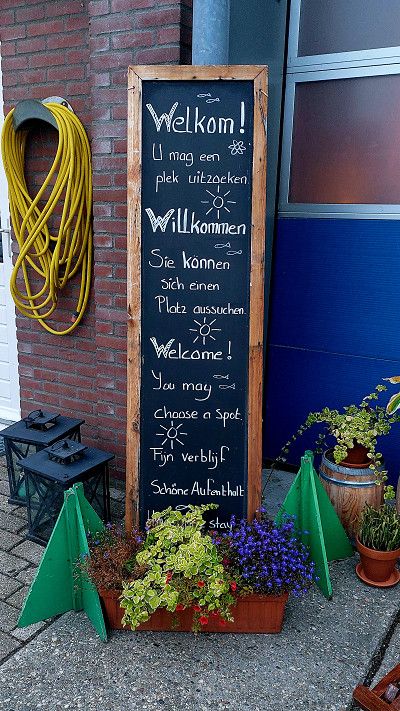 Welkom!
U mag een
plek uitzoeken.
Willkommen
Sie können
sich einen
Platz aussuchen.
Welcome!
You may
choose a spot.
Fijn verblijf
Schöne Aufenthalt
stay